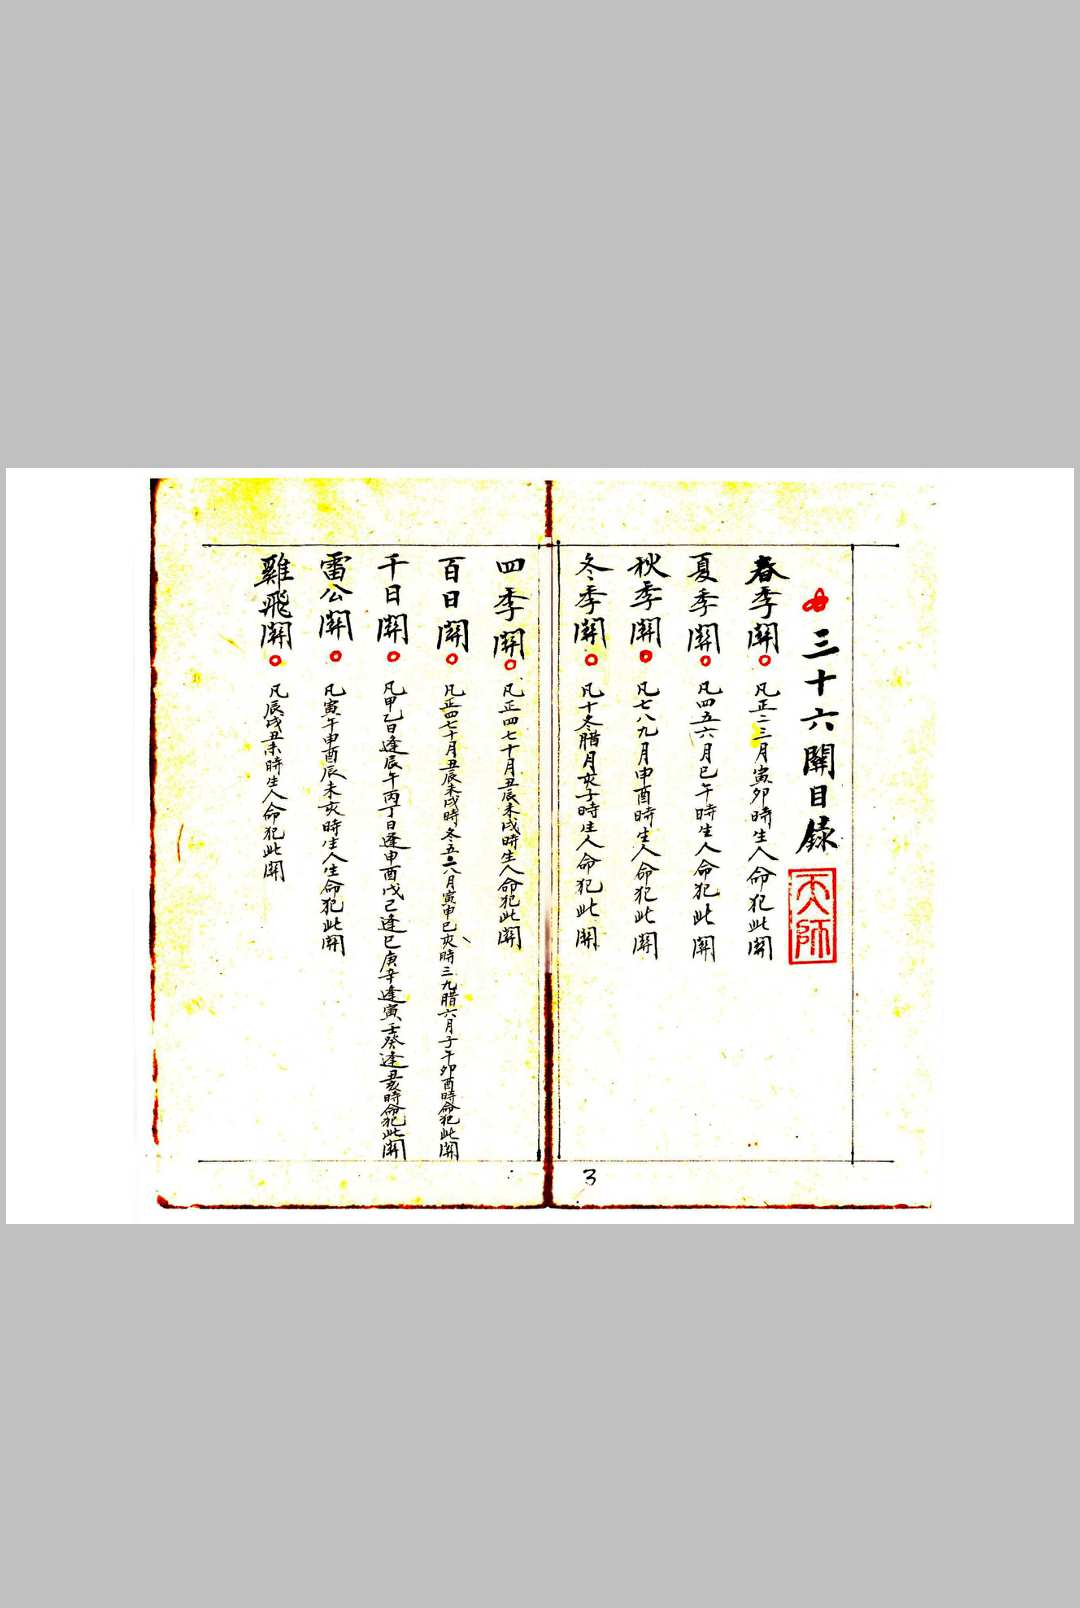 三十六關目錄
天師
春季關 凡正二三月寅卯時生人命犯此關
夏季關 凡四五六月巳午時生人命犯此關
秋季關 凡七八九月申酉時生人命犯此關
冬季關 凡十冬腊月亥子時生人命犯此關
四季關 凡正四七十月丑辰未戌時生人命犯此關
百日關 凡正四七十月丑辰未戌時冬五二八月寅申巳亥時三九腊六月子午卯酉時命犯此關
千日關 凡甲乙日逢辰午丙丁日逢申酉戊己逢巳庚辛逢寅壬癸逢丑亥時命犯此關
雷公關 凡寅午申酉辰未亥時生人生命犯此關
雞飛關 凡辰戌丑未時生人命犯此關
3